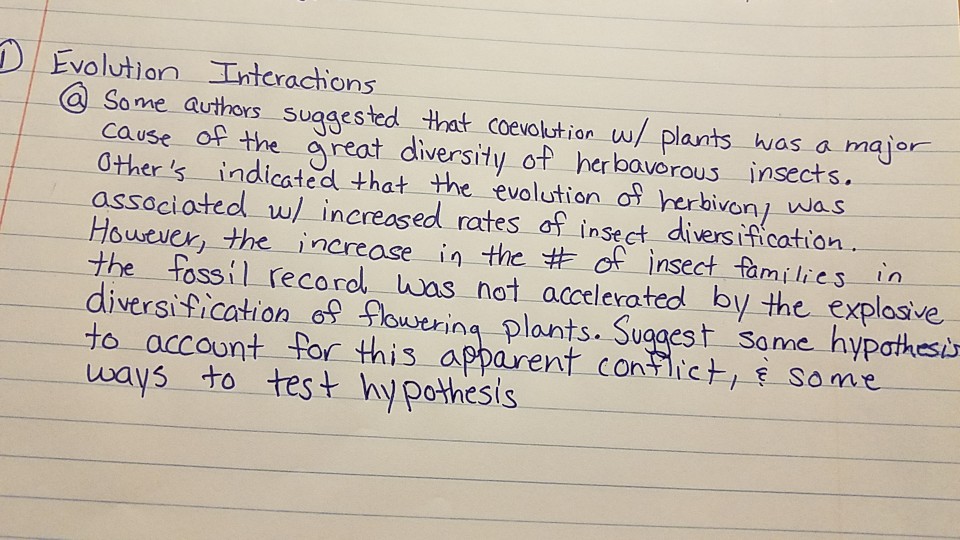 1 Evolution Interactions
a Some authors suggested that coevolution w/ plants was a major
cause of the great diversity of herbavorous insects.
Other's indicated that the evolution of herbivory was
associated w/ increased rates of insect diversification.
However, the increase in the # of insect families in
the fossil record was not accelerated by the explosive
diversification of flowering plants. Suggest some hypothesis
to account for this apparent conflict, & some
ways to test hypothesis